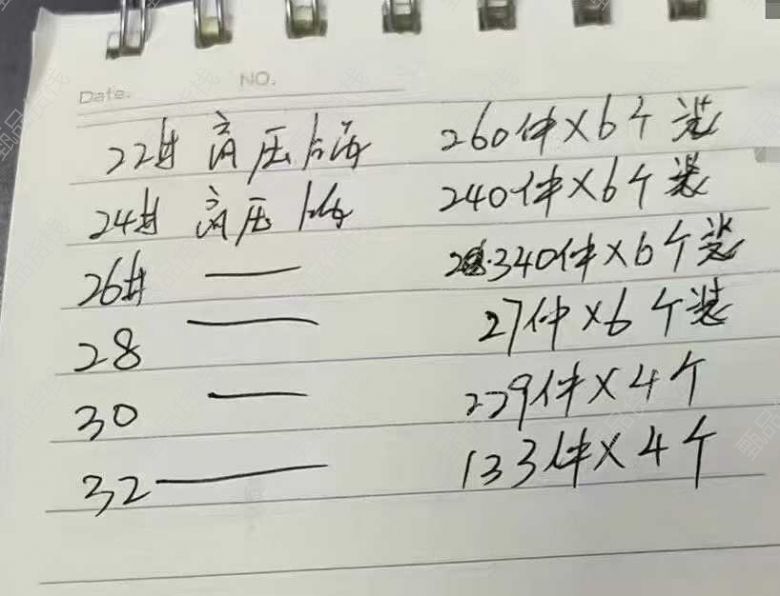 Date.
NO.
22# 高压锅 260件×6个装
24# 高压锅 240件×6个装
26# — 340件×6个装
28 — 27件×6个装
30 — 229件×4个
32 — 133件×4个